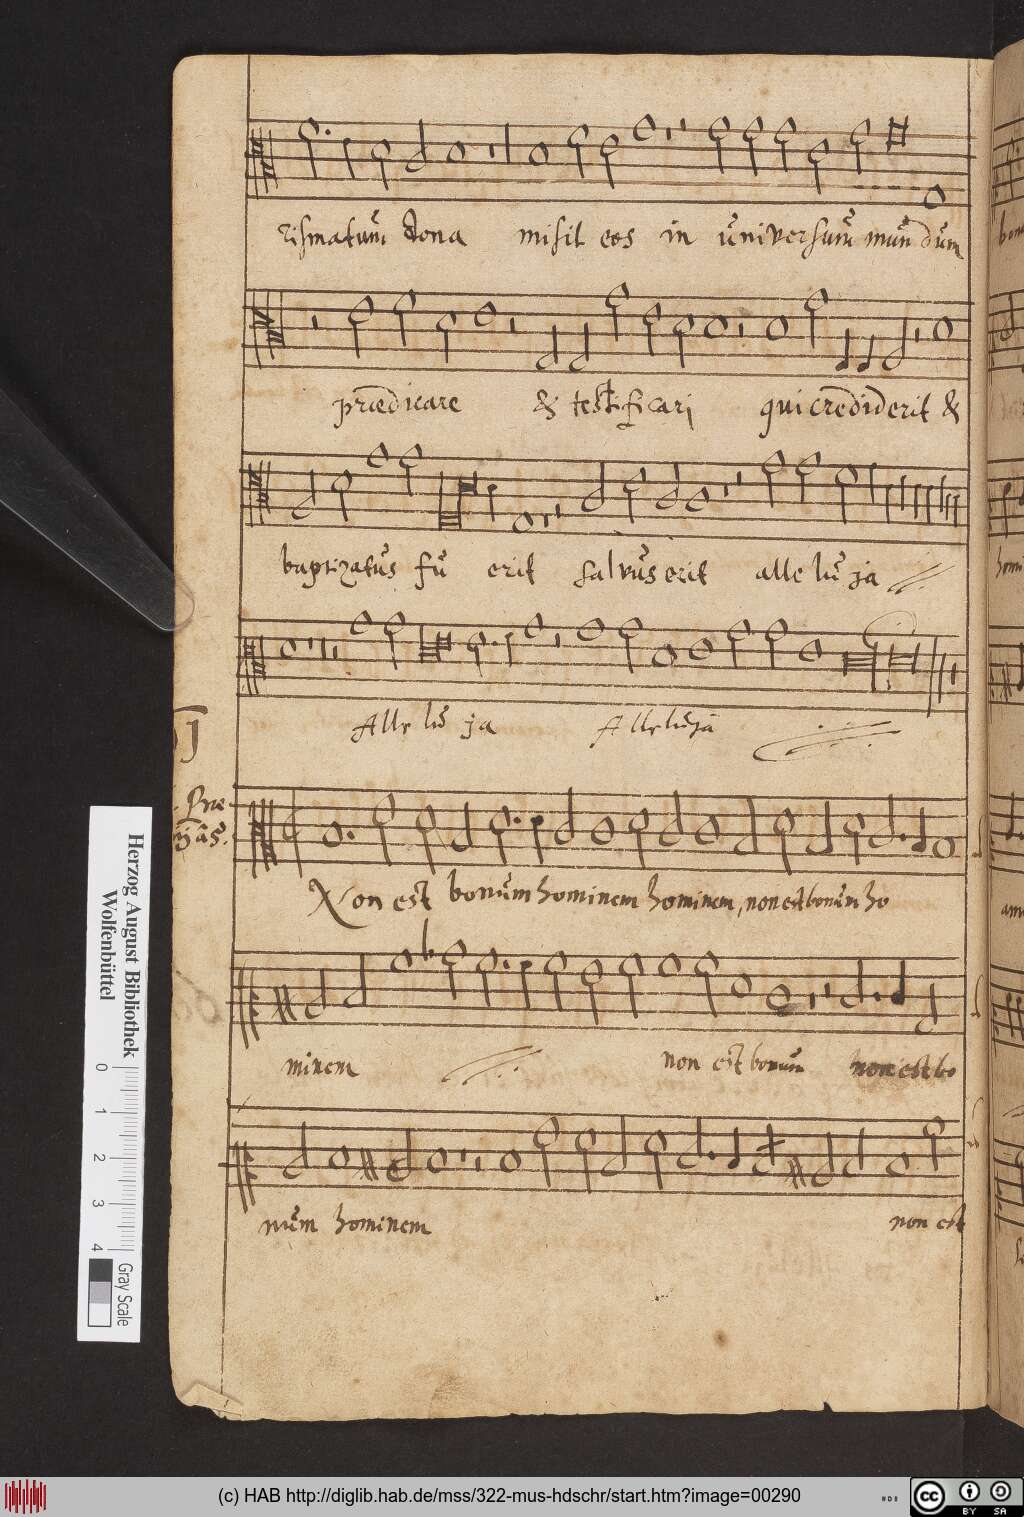 rismatum dona misit eos in universum mundum
prædicare & testificari qui crediderit &
baptizatus fu erit salvus erit alle lu ja
Alle lu ja Alleluja
Non est bonum hominem hominem, non est bonum ho
minem non est bonum non est bo
num hominem non est
Herzog August Bibliothek
Wolfenbüttel
0 1 2 3 4
Gray Scale
(c) HAB http://diglib.hab.de/mss/322-mus-hdschr/start.htm?image=00290
HAB
cc BY SA